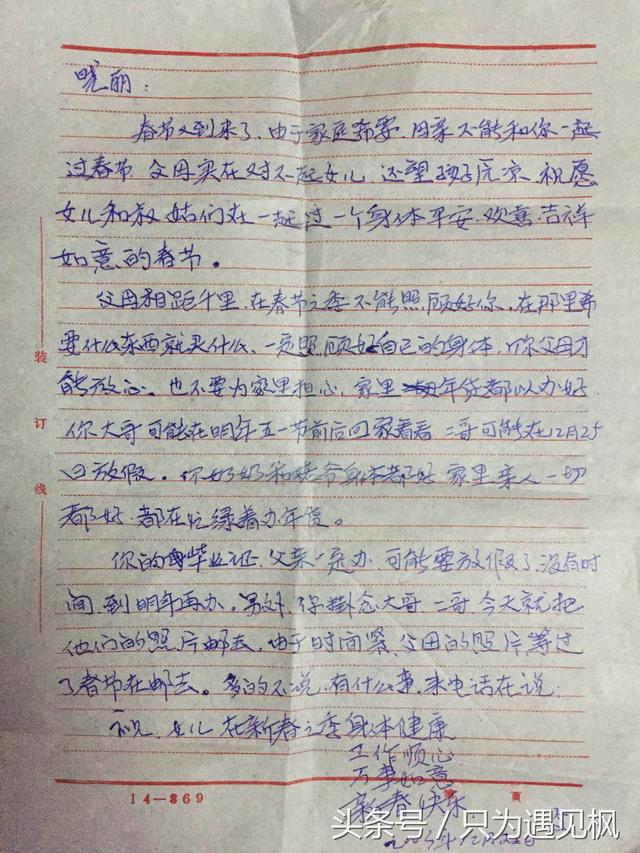 晓丽:
春节又到来了.由于家庭需要.母亲不能和你一起
过春节.父母实在对不起女儿.还望孩子原凉.祝愿
女儿和叔姑们在一起过一个身体平安.欢喜.吉祥
如意的春节。
父母相距千里.在春节之季不能照顾好你.在那里需
要什么东西就买什么.一定照顾好自己的身体.你父母才
能放心.也不要为家里担心.家里年货都以办好.
你大哥可能在明年五一节前后回家看看 二哥可能在12月25
日放假.你奶奶和爷身体都好 家里亲人一切
都好 都在忙绿着办年货。
你的毕业证.父亲一定办.可能要放假了.没有时
间.到明年再办。另外.你掛念大哥 二哥 今天就把
他们的照片邮去.由于时间紧.父母的照片等过
了春节在邮去。多的不说.有什么事.来电话在说.
祝 女儿 在新春之季身体健康
工作顺心
万事如意
新春快乐
装
订
线
14-869
第 页
头条号/只为遇见枫